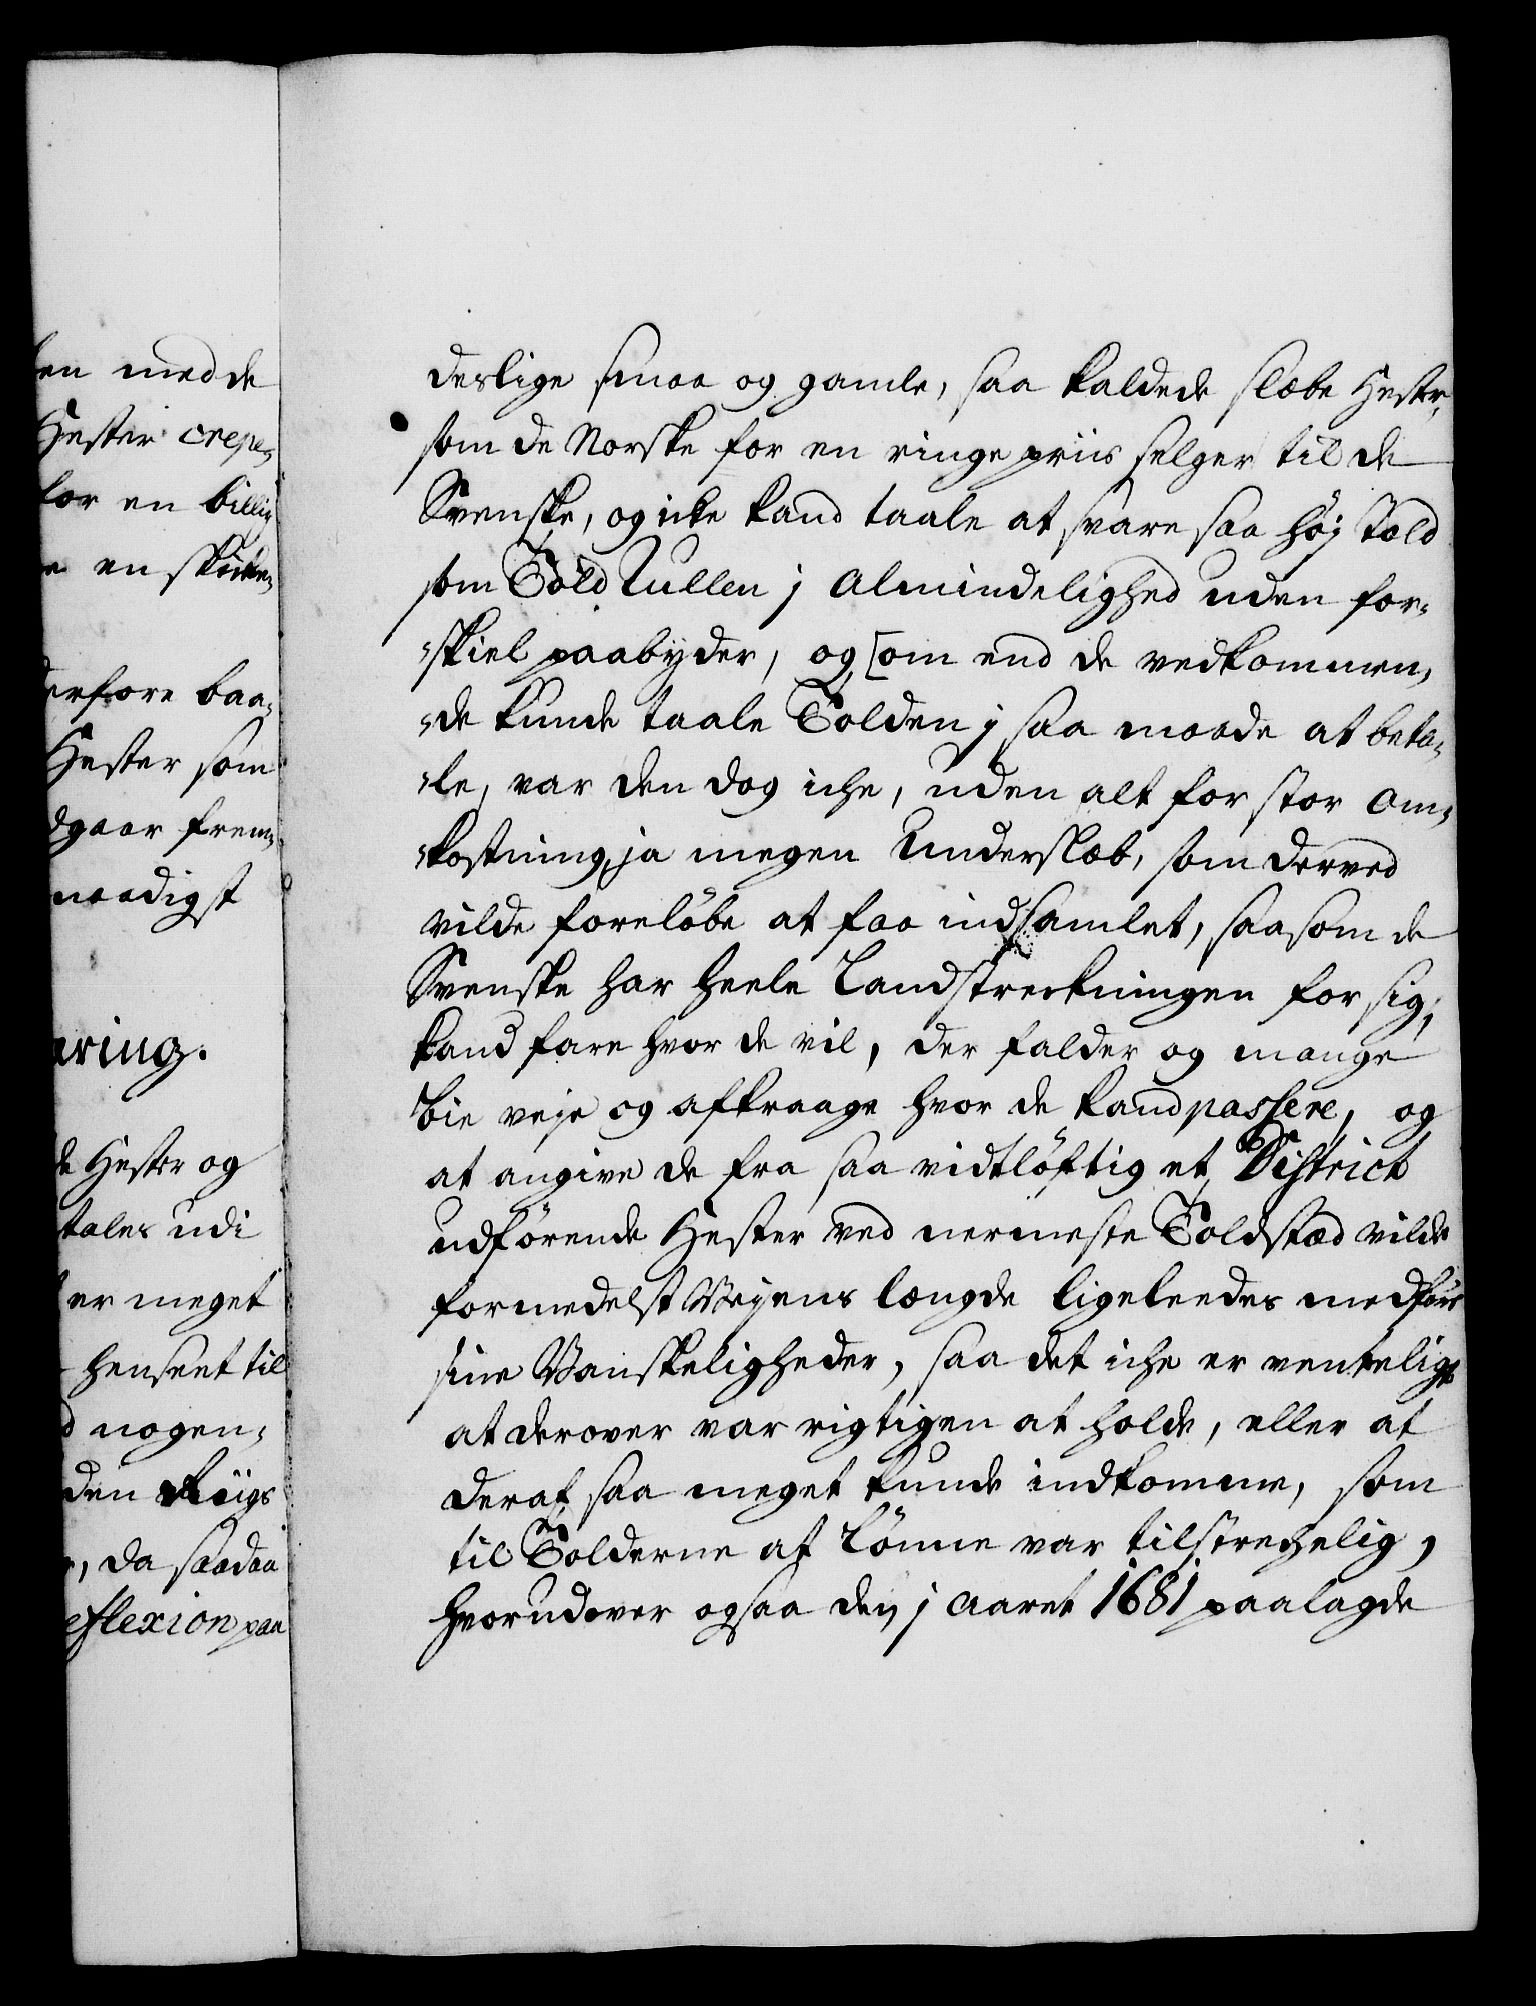 en med de
Hester crepe,
for en billig
en skicke,
derfore baa,
Hester som
dgaar frem,
naadigst
æring.
de Hester og
tales udi
er meget
henseet til
d nogen,
den Kiigs
, da saadaa
eflexion paa
deslige smaa og gamle, saa kaldede slæbe Hester,
som de Norske for en ringe priis selger til de
Svenske, og icke kand taale at svare saa høj Told
som Told Rullen j Almindelighed uden for,
„skiel paabyder, og [om end de vedkommen,
„de kunde taale Tolden j saa maade at beta,
„le, var den dog iche, uden alt for stor om,
„kostning, ja megen Underslæb, som derved
vilde foreløbe at faa indsamlet, saasom de
Svenske har heele Landstreckningen for sig,
kand fare hvor de vil, der falder og mange
bie veje og afkraage hvor de kand passere, og
at angive de fra saa vidtløftig et District
udførende Hester ved nermeste Toldstæd vilde
formedelst Vejens længde ligeleedes medføre
sine Vanskeligheder, saa det iche er venteligt
at derover var rigtigen at holde, eller at
deraf saa meget kunde indkomme, som
til Tolderne af Lønne var tilstrechelig,
hvorudover ogsaa den j Aaret 1681 paalagde